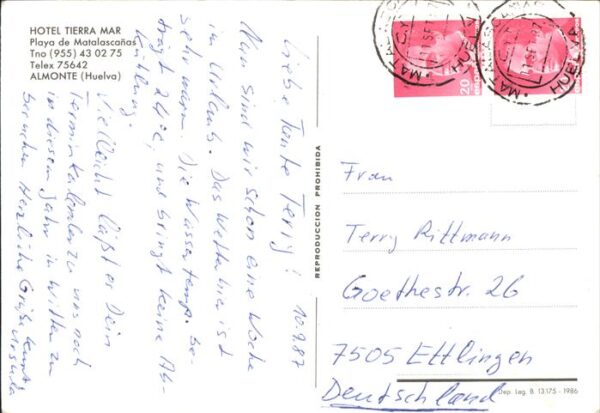 HOTEL TIERRA MAR
Playa de Matalascañas
Tno (955) 43 02 75
Telex 75642
ALMONTE (Huelva)
10.9.87
Liebe Tante Terry!
Nun sind wir schon eine Woche
im Urlaub. Das Wetter hier ist
sehr warm. Die Wassertemp. be-
trägt 24°C, und bringt keine Ab-
kühlung.
Vielleicht läßt es Dein
Terminkalender zu uns noch
in diesem Jahr in Witten zu
besuchen. Herzliche Grüße
Ursula
REPRODUCCION PROHIBIDA
20
HUELVA
11 SET 87
HUELVA
Frau
Terry Rittmann
Goethestr. 26
7505 Ettlingen
Deutschland
Dep. Leg. B. 13.175 - 1986